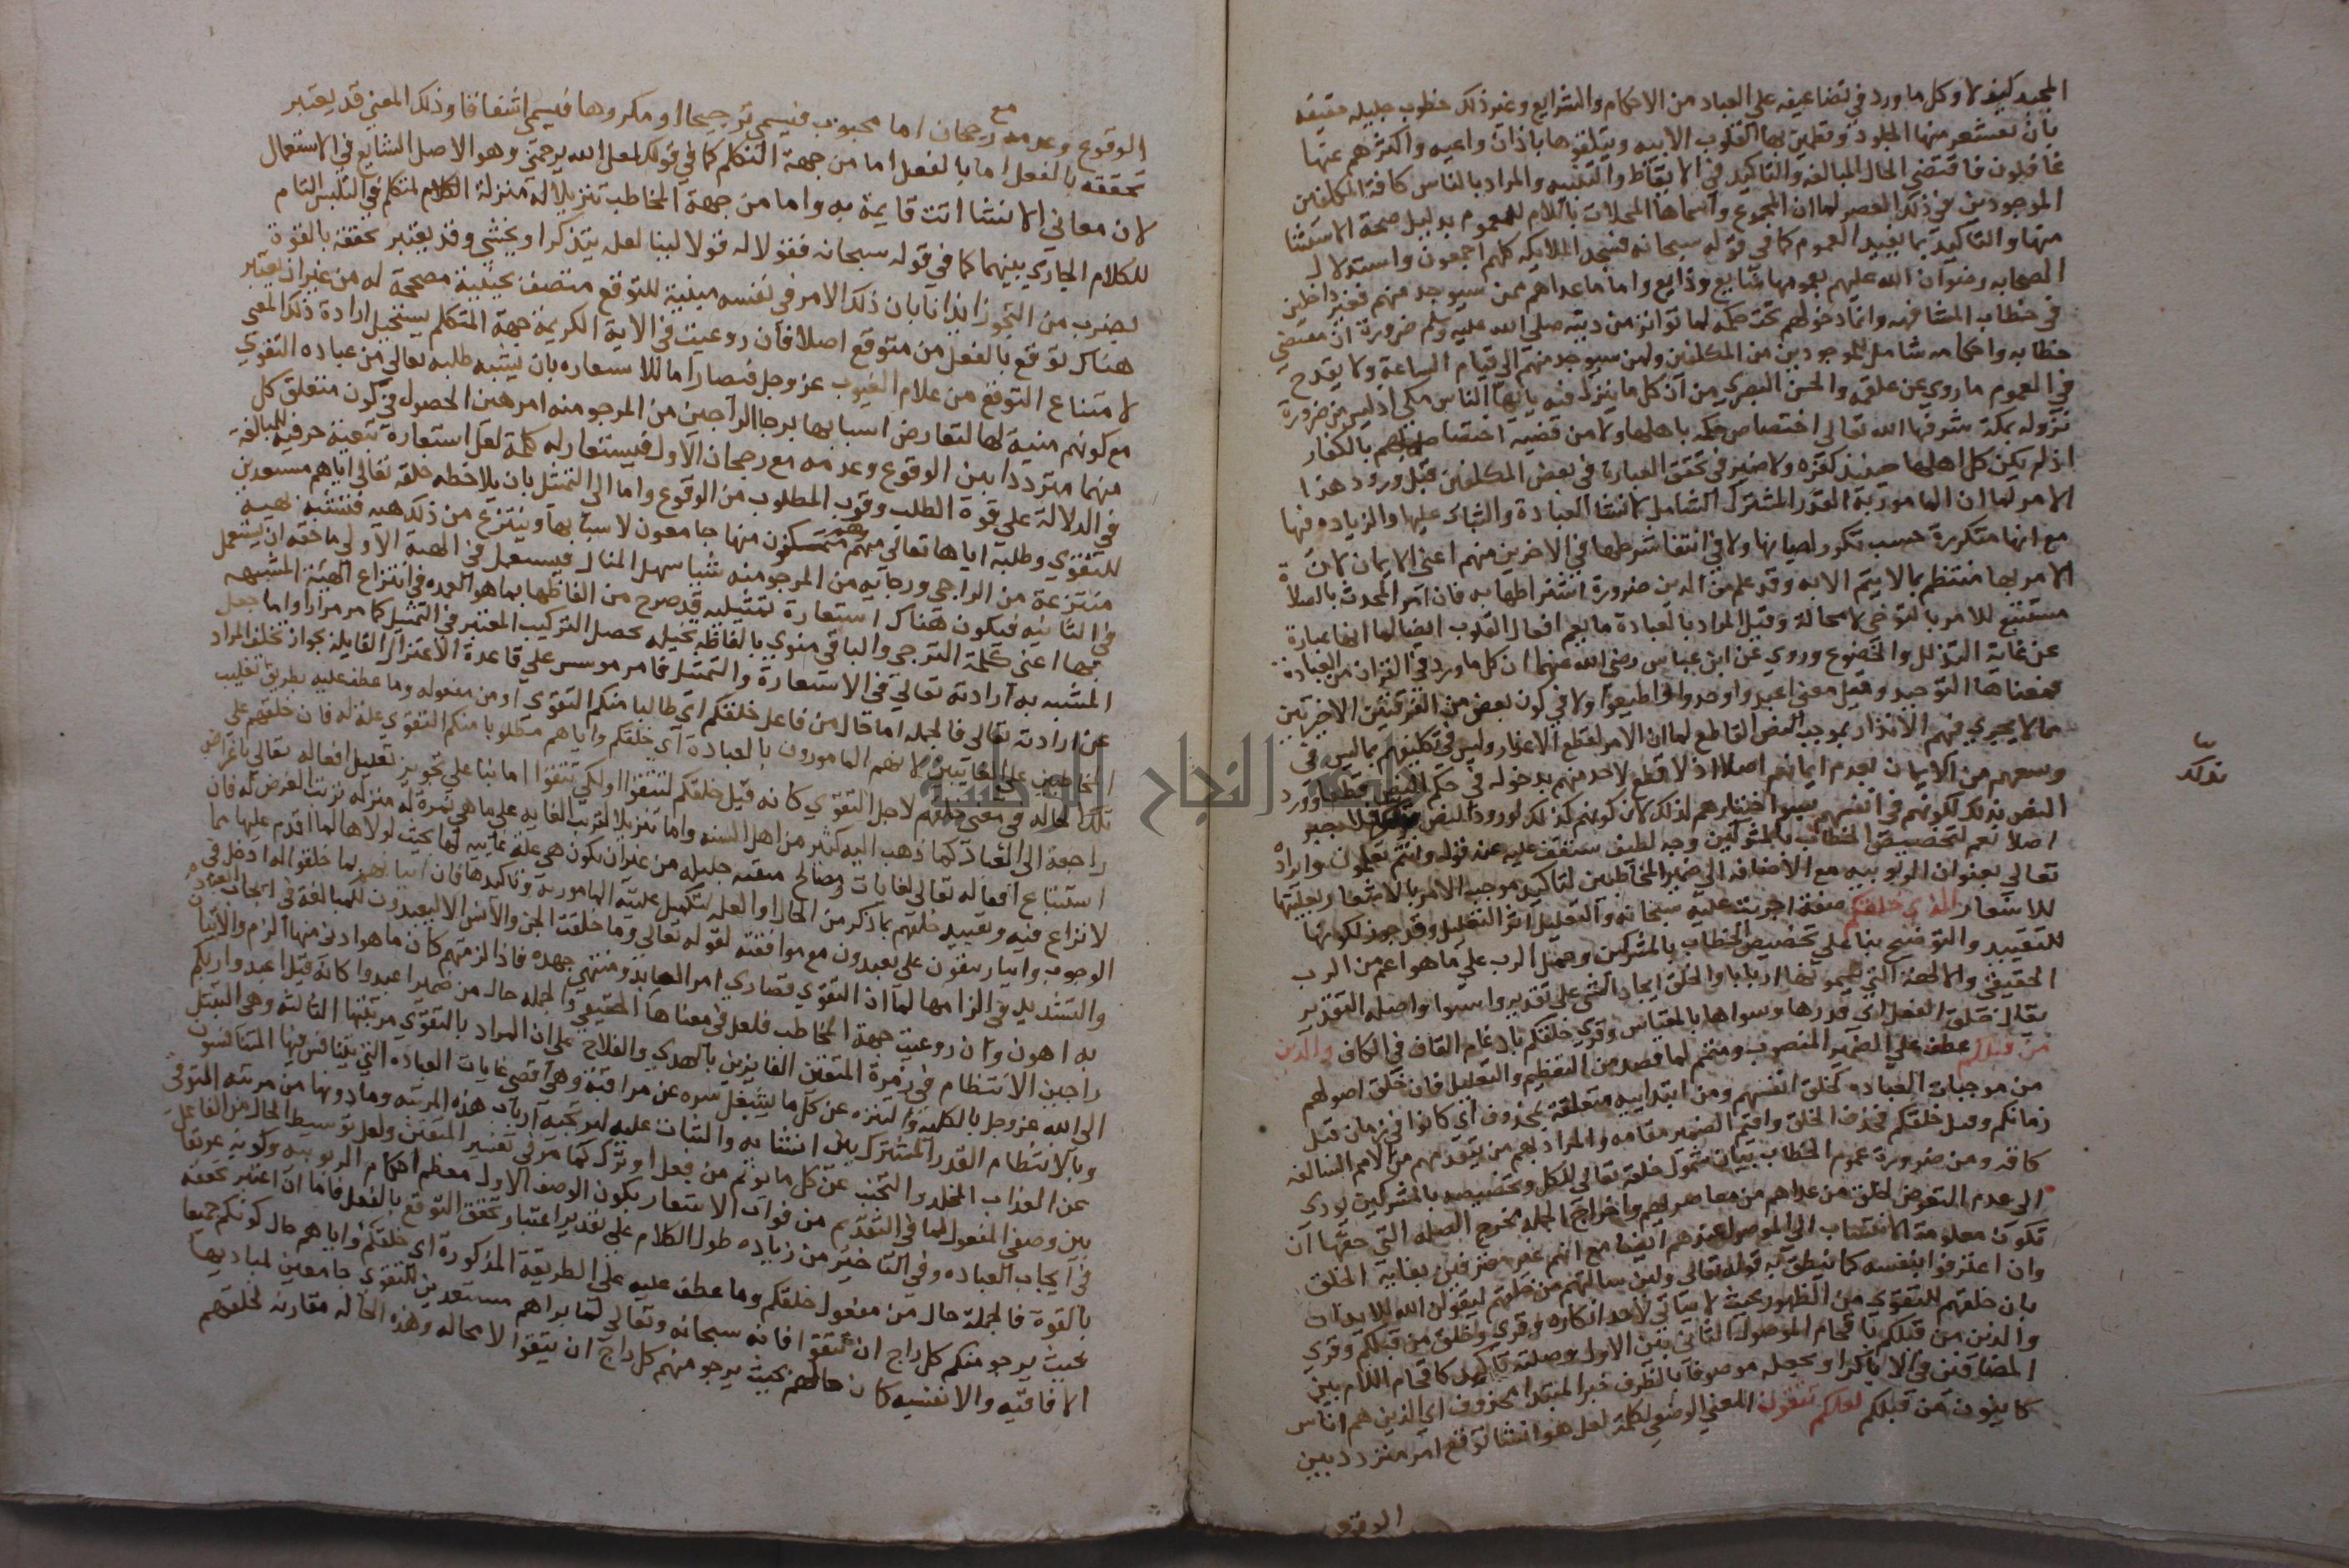 المجيد كيف لا وكل ما ورد في تضاعيفه على العباد من الاحكام والشرايع وغير ذلك خطوب جليله حقيقه
بان تقشعر منها الجلود وتطمئن بها القلوب الابيه ويتلقوها باذان واعيه واكثرهم عنها
غافلون فاقتضى الحال المبالغه والتاكيد في الايقاظ والتنبيه والمراد بالناس كافة المكلفين
الموجودين في ذلك العصر لما ان الجموع واسماها المحلات باللام للعموم بدليل صحة الاستثنا
منها والتاكيد بما يفيد العموم كما في قوله سبحانه فسجد الملايكه كلهم اجمعون واستدلال
الصحابه رضوان الله عليهم بعمومها شايع وذايع واما ما عداهم ممن سيوجد منهم فغير داخلين
في خطاب المشافهه وانما دخولهم تحت حكمه لما تواتر من دينه صلى الله عليه وسلم ضرورة ان مقتضى
خطابه واحكامه شامل للموجودين من المكلفين ولمن سيوجد منهم الى قيام الساعة ولا يقدح
في العموم ما روي عن علقمه والحسن البصري من ان كل ما نزل فيه يا ايها الناس مكي اذ ليس من ضرورة
نزوله بمكة شرفها الله تعالى اختصاص حكمه باهلها ولا من قضيه اختصاصه بهم بالكفار
اذ لم يكن كل اهلها حينئذ كفره ولا ضير في تحقق العبارة في بعض المكلفين قبل ورود هذا
الامر لما ان المامور به القدر المشترك الشامل لانشا العبادة والثبات عليها والزياده فيها
مع انها متكررة حسب تكرر اسبابها ولا في انتفا شرطها في الاخرين منهم اعني الايمان لان
الامر بها منتظم بما لا يتم الا به وقد علم من الدين ضرورة اشتراطها به فان امر المحدث بالصلاة
مستتبع للامر بالتوضي لا محالة وقيل المراد بالعبادة ما يعم افعال القلوب ايضا لما انها عبارة
عن غاية التذلل والخضوع وروي عن ابن عباس رضي الله عنهما ان كل ما ورد في القران من العبادة
فمعناها التوحيد وقيل معنى اعبدوا وحدوا واطيعوا ولا في كون بعض من الفرقتين الاخيرتين
مما لا يجدي فيهم الانذار بموجب النص القاطع لما ان الامر لقطع الاعذار وليس في تكليفهم بما ليس في
وسعهم من الايمان بعدم ايمانهم اصلا اذ لا قطع لاحد منهم بدخوله في حكم النص قطعا وورد
النص بذلك لكونهم في انفسهم بسوا اختيارهم لذلك لا ان كونهم كذلك لورود النص بذلك فلا جبر
بذلك
اصلا نعم لتخصيص الخطاب بالمشركين وجه لطيف ستقف عليه عند قوله وانتم تعلمون وايراده
تعالى بعنوان الربوبيه مع الاضافه الى ضمير المخاطبين لتاكيد موجب الامر بالاشعار بعليتها
للاشعار الذي خلقكم صفة اجريت عليه سبحانه والتعليل اثر التعليل وقد جوز كونها
للتقييد والتوضيح بنا على تخصيص الخطاب بالمشركين وحمل الرب على ما هو اعم من الرب
الحقيقي والالهة التي يسمونها اربابا والخلق ايجاد الشي على تقدير واستوا واصله التقدير
يقال خلق النعل اي قدرها وسواها بالمقياس وقرئ خلقكم بادغام القاف في الكاف والذين
من قبلكم عطف على الضمير المنصوب ومتمم لما قصد من التعظيم والتعليل فان خلق اصولهم
من موجبات العباده كخلق انفسهم ومن ابتدائيه متعلقة بمحذوف اي كانوا في زمان قبل
زمانكم وقيل خلقكم فحذف الخلق واقيم الضمير مقامه والمراد بهم من تقدمهم من الامم السالفه
كافه ومن ضرورة عموم الخطاب بيان شمول خلقه تعالى للكل وتخصيصه بالمشركين يودي
الى عدم التعرض لخلق من عداهم من معاصريهم واخراج الجمله مخرج الصله التي حقها ان
تكون معلومة الانتساب الى الموصول عندهم ايضا مع انهم غير معترفين بغاية الخلق
وان اعترفوا بنفسه كما ينطق به قوله تعالى ولئن سالتهم من خلقهم ليقولن الله للايذان
بان خلقهم للتقوى من الظهور بحيث لا يتاتى لاحد انكاره وقرئ وخلق من قبلكم وقرئ
والذين من قبلكم باقحام الموصول الثاني بين الاول وصلته تاكيدا كاقحام اللام بين
المضافين في لا ابا لك او يجعله موصوفا بالظرف خبرا لمبتدا محذوف اي الذين هم اناس
كاينون من قبلكم لعلكم تتقون المعنى الوضعي لكلمة لعل هو انشا توقع امر متردد بين
الوقوع
الوقوع وعدمه مع رجحان اما محبوب فيسمى ترجيا او مكروها فيسمى اشفاقا وذلك المعنى قد يعتبر
تحققه بالفعل اما بالفعل اما من جهة المتكلم كما في قولك لعل الله يرحمني وهو الاصل الشايع في الاستعمال
لان معاني الانشاات قايمة به واما من جهة المخاطب تنزيلا له منزلة المتكلم في التلبس التام
للكلام الجاري بينهما كما في قوله سبحانه فقولا له قولا لينا لعله يتذكر او يخشى وقد يعتبر تحققه بالقوة
بضرب من التجوز ايذانا بان ذلك الامر في نفسه مبنية للتوقع متصف بحيثية مصححة له من غير ان يعتبر
هناك توقع بالفعل من متوقع اصلا فان روعيت في الاية الكريمة جهة المتكلم يستحيل ارادة ذلك المعنى
لامتناع التوقع من علام الغيوب عز وجل فيصار اما للاستعاره بان يشبه طلبه تعالى من عباده التقوى
مع كونهم مئنة لها لتعارض اسبابها برجا الراجين من المرجو منه امر هين الحصول في كون متعلق كل
منهما مترددا بين الوقوع وعدمه مع رجحان الاول فيستعار له كلمة لعل استعارة تبعية حرفية للمبالغة
في الدلالة على قوة الطلب وقرب المطلوب من الوقوع واما الى التمثيل بان يلاحظ خلقه تعالى اياهم مستعدين
للتقوى وطلبه اياها تعالى منهم وهم متمكنون منها جامعون لاسبابها وينتزع من ذلك هيئة فتشبه بهيئة
منتزعة من الراجي ورجايه من المرجو منه شيا سهل المنال فيستعمل في الهيئة الاولى ما حقه ان يستعمل
في الثانيه فيكون هناك استعارة تمثيليه قد صرح من الفاظها بما هو العمده في انتزاع الهيئة المشبه
بها اعني كلمة الترجي والباقي منوي بالفاظ متخيله يحصل التركيب المعتبر في التمثيل كما مر مرارا واما جعل
المشبه به ارادته تعالى في الاستعارة والتمثيل فامر موسس على قاعدة الاعتزال القايلة بجواز تخلف المراد
عن ارادته تعالى فالجمله اما حال من فاعل خلقكم اي طالبا منكم التقوى او من مفعوله وما عطف عليه بطريق تغليب
المخاطبين على الغايبين لانهم المامورون بالعبادة اي خلقكم واياهم مطلوبا منكم التقوى علة له فان خلقهم على
تلك الحاله في معنى خلقهم لاجل التقوى كانه قيل خلقكم لتتقوا او لكي تتقوا اما بنا على تجويز تعليل افعاله تعالى باغراض
راجعة الى العباد كما ذهب اليه كثير من اهل السنه واما تنزيلا لترتب الغايه على ما هي ثمرة له منزلة ترتب الغرض له فان
استتباع افعاله تعالى لغايات ومصالح متقنه جليله من غير ان تكون هي علة غاييه لها بحيث لولاها لما اقدم عليها مما
لا نزاع فيه وتقييد خلقهم بما ذكر من الحال او العله لتكميل علية المامور به وتاكيدها فان اتيانهم بما خلقوا له ادخل في
الوجوب وايثار تتقون على تعبدون مع موافقته لقوله تعالى وما خلقت الجن والانس الا ليعبدون للمبالغة في ايجاب العباده
والتشديد في الزامها لما ان التقوى قصارى امر العابد ومنتهى جهده فاذا لزمتهم كان ما هو ادنى منها الزم والاتيان
به اهون وان روعيت جهة المخاطب فلعل في معناها الحقيقي والجمله حال من ضمير اعبدوا كانه قيل اعبدوا ربكم
راجين الانتظام في زمرة المتقين الفايزين بالهدى والفلاح على ان المراد بالتقوى مرتبتها الثالثة وهي التبتل
الى الله عز وجل بالكلية والتنزه عن كل ما يشغل سره عن مراقبته وهي اقصى غايات العباده التي يتنافس فيها المتنافسون
وبالانتظام القدر المشترك بين انشائه والثبات عليه ليرتجيه ارباب هذه المرتبه وما دونها من مرتبة التوقي
عن العذاب المخلد والتجنب عن كل ما يوثم من فعل او ترك كما مر في تفسير المتقين ولعل توسيط الحال من الفاعل
بين وصفي المفعول لما في التقديم من فوات الاشعار بكون الوصف الاول معظم احكام الربوبيه وكونه عريقا
في ايجاب العباده وفي التاخير من زياده طول الكلام على تقدير اعتبار تحقق التوقع بالفعل فاما ان اعتبر تحققه
بالقوة فالجملة حال من مفعول خلقكم وما عطف عليه على الطريقة المذكورة اي خلقكم واياهم حال كونكم جميعا
بحيث يرجو منكم كل راج ان تتقوا فانه سبحانه وتعالى لما براهم مستعدين للتقوى جامعين لمباديها
الافاقيه والانفسيه كان حالهم بحيث يرجو منهم كل راج ان يتقوا لا محاله وهذه الحاله مقارنه لخلقهم